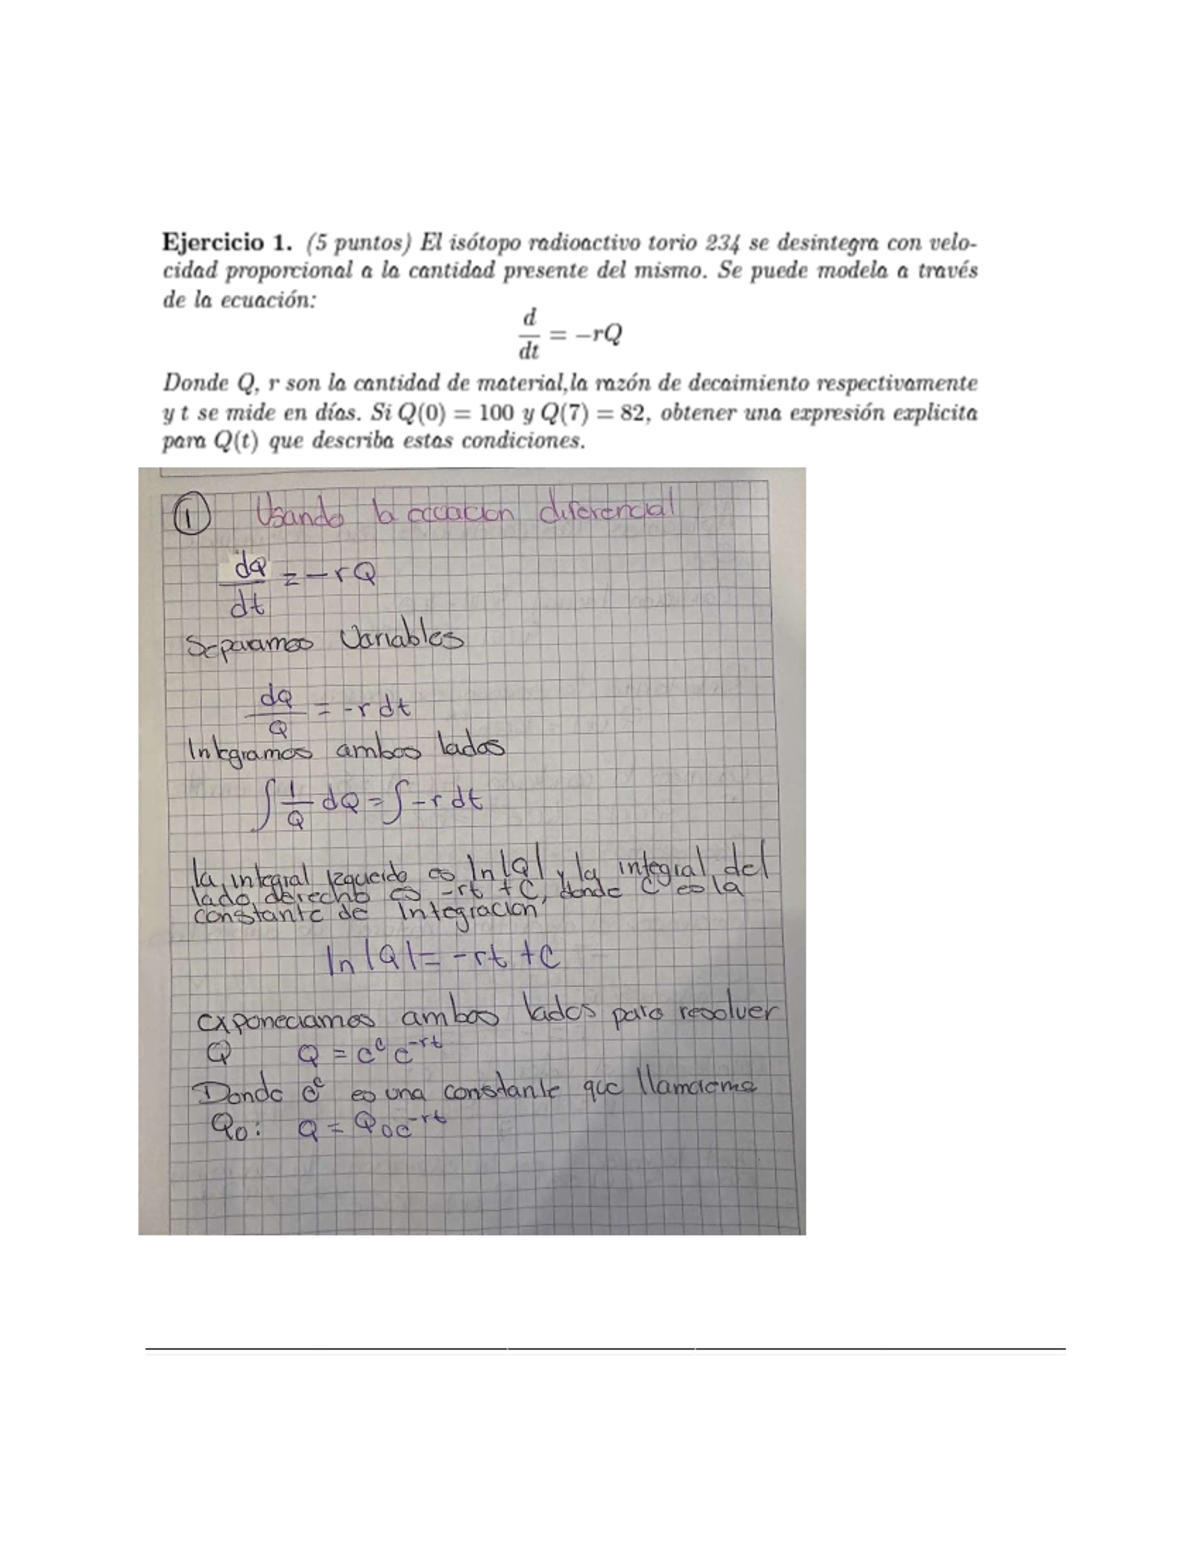 Ejercicio 1. (5 puntos) El isótopo radioactivo torio 234 se desintegra con velo-
cidad proporcional a la cantidad presente del mismo. Se puede modela a través
de la ecuación:
d/dt = -rQ
Donde Q, r son la cantidad de material,la razón de decaimiento respectivamente
y t se mide en días. Si Q(0) = 100 y Q(7) = 82, obtener una expresión explicita
para Q(t) que describa estas condiciones.
1 Usando la ecuacion diferencial
dQ/dt = -rQ
Separamos Variables
dQ/Q = -r dt
Integramos ambos lados
∫ 1/Q dQ = ∫ -r dt
la integral Izqueido es ln|Q| y la integral del
lado derecho es -rt + C, donde C es la
constante de Integracion
ln|Q| = -rt + C
exponeciamos ambos lados para resolver
Q Q = e^c e^-rt
Donde e^c es una constante que llamaremo
Q0: Q = Q0e^-rt